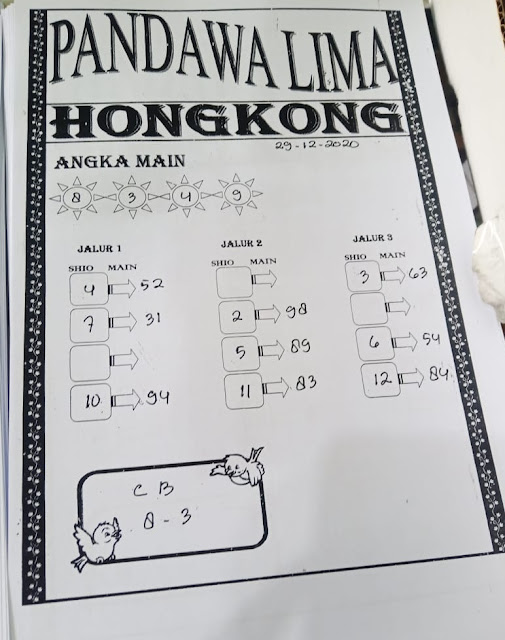 PANDAWA LIMA
HONGKONG
29-12-2020
ANGKA MAIN
8 3 4 9
JALUR 1
SHIO MAIN
4 52
7 31
10 94
JALUR 2
SHIO MAIN
2 98
5 89
11 83
JALUR 3
SHIO MAIN
3 63
6 54
12 84
CB
8-3